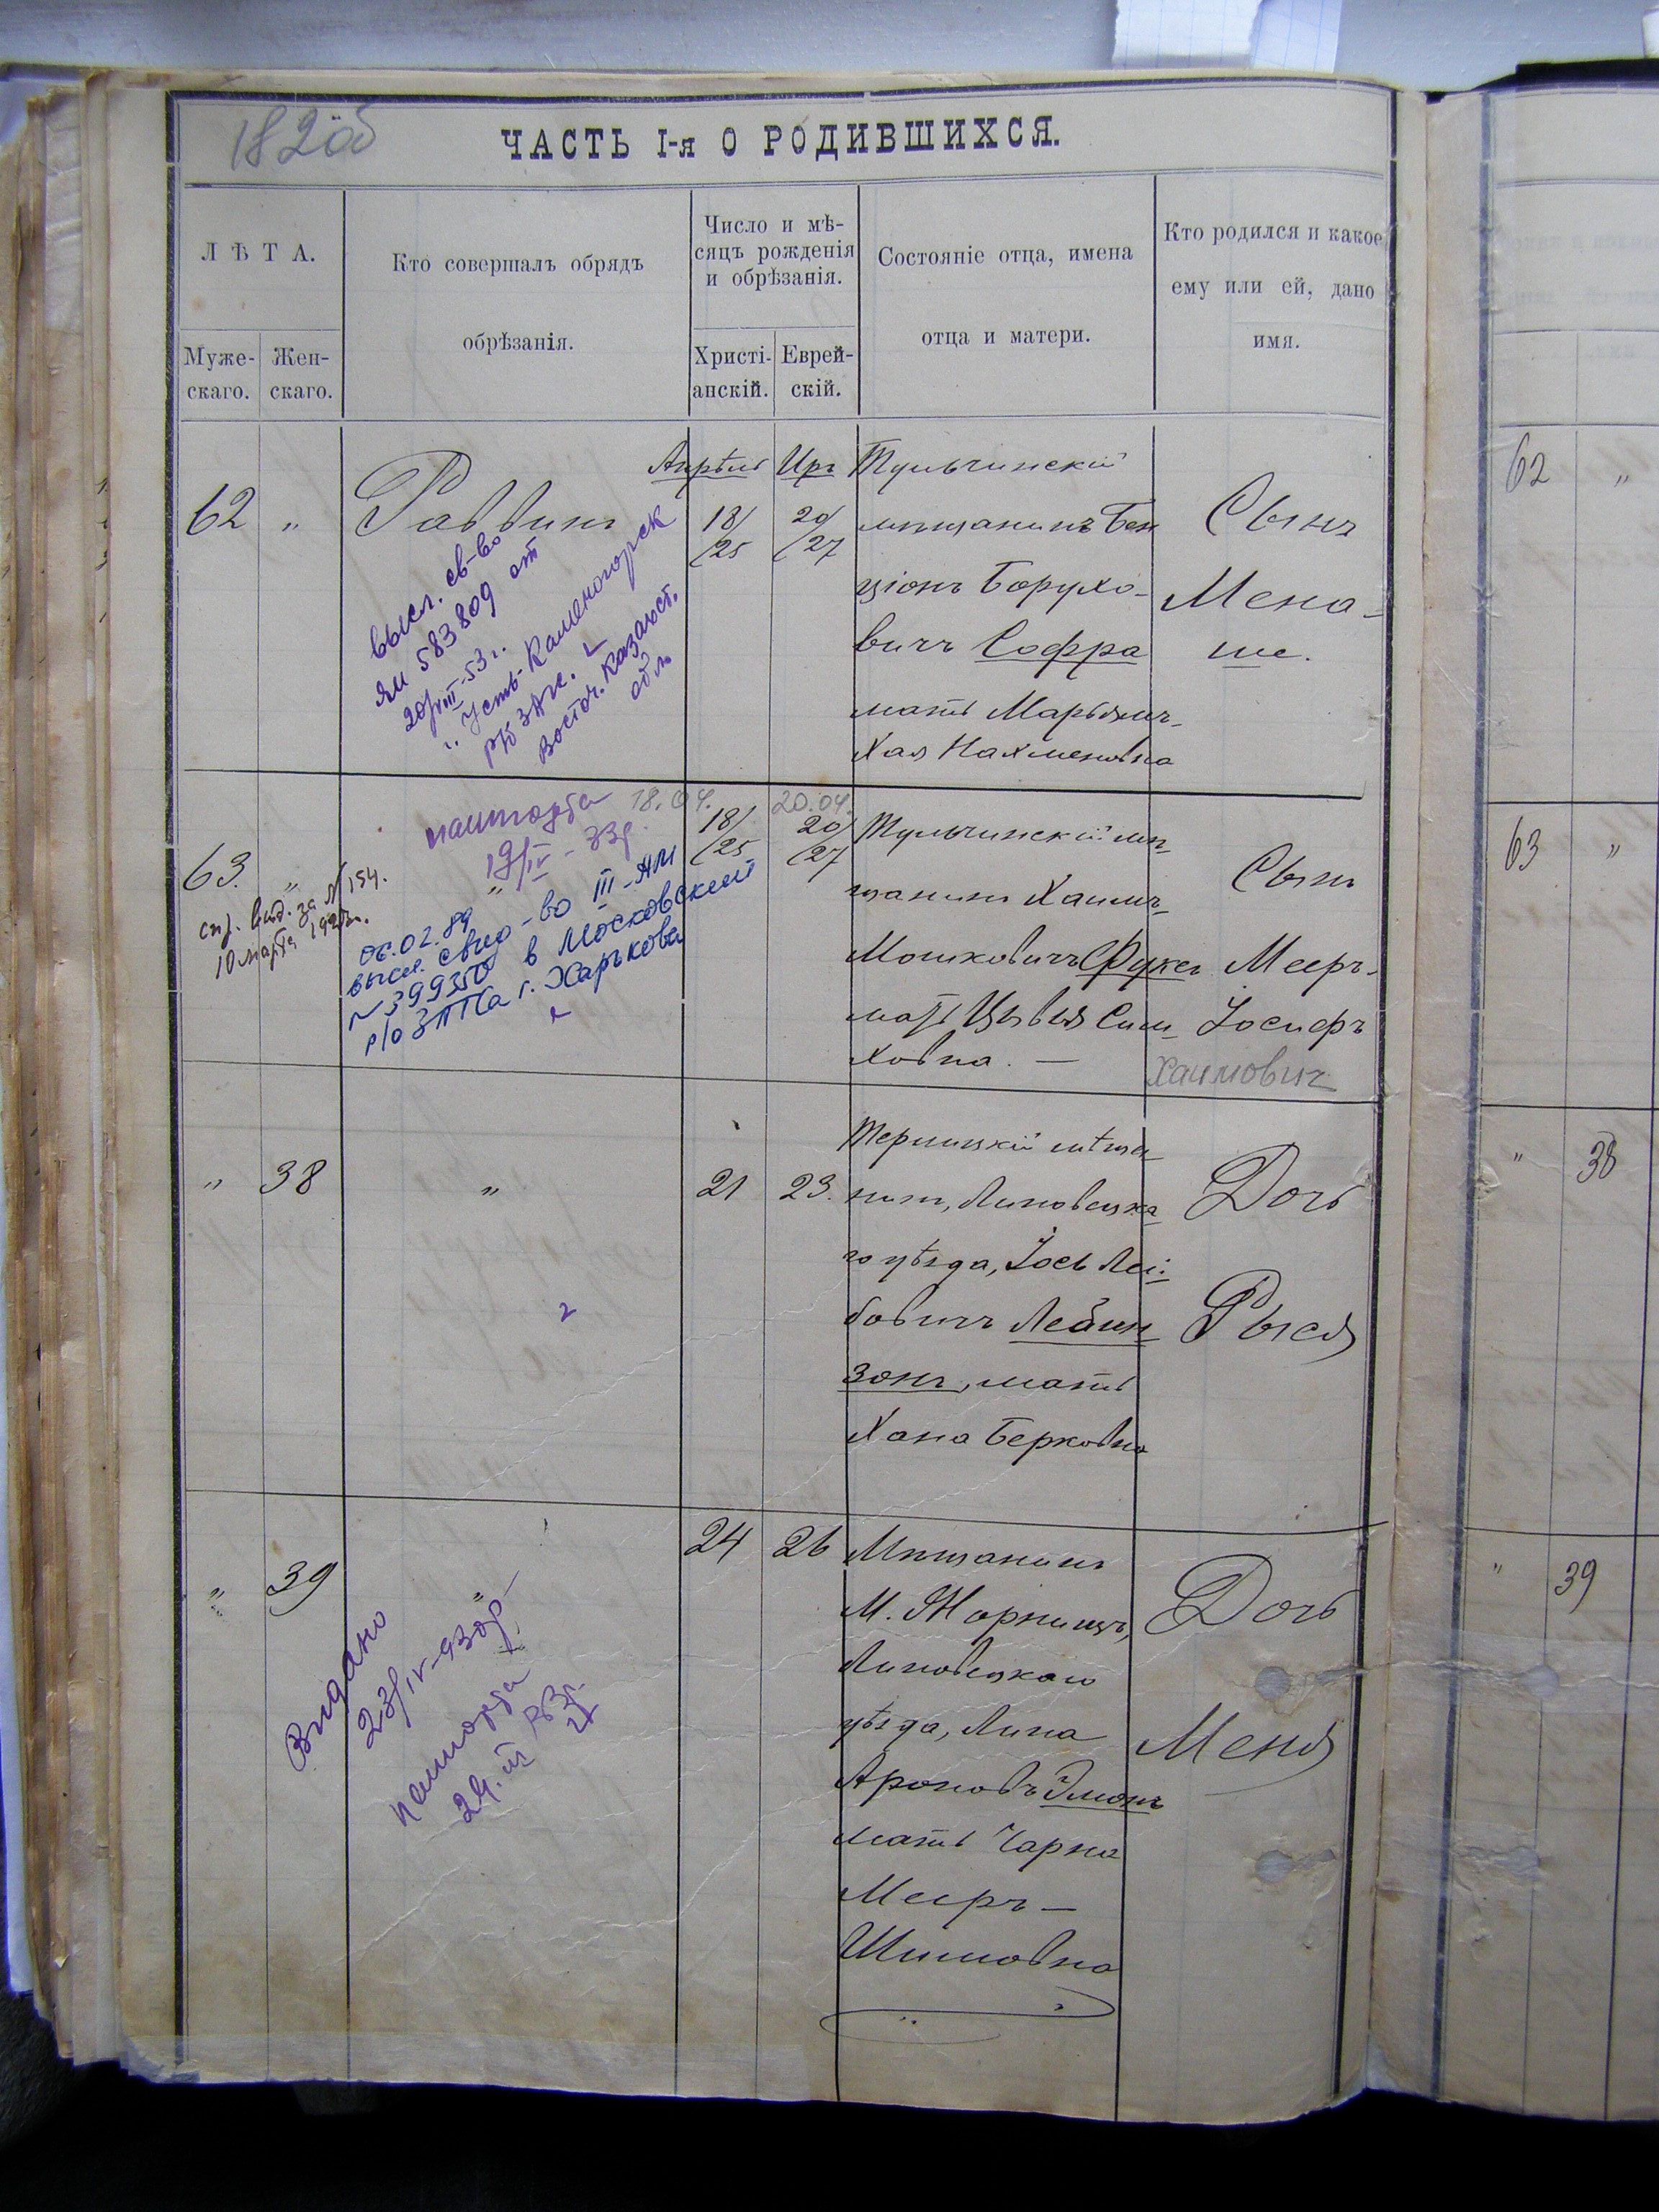 182об
ЧАСТЬ I-я О РОДИВШИХСЯ.
ЛѢТА.
Муже-
скаго.
Жен-
скаго.
Кто совершалъ обрядъ
обрѣзанія.
Число и мѣ-
сяцъ рожденія
и обрѣзанія.
Христі-
анскій.
Еврей-
скій.
Состояніе отца, имена
отца и матери.
Кто родился и какое
ему или ей, дано
имя.
62 "
Раввинъ
высл. св-во
ЯИ 583809 от
20/VIII-53 г.
Усть-Каменогорск
р/б ЗАГС.
Восточ. Казахст.
обл
Апрѣль Иръ
18/ 20/
/25 /27
Тульчинскій
мѣщанинъ Бен
ціонъ Борухо-
вичъ Софра
мать Марьямъ-
Хая Нахменовна
Сынъ
Мена-
ше.
63. "
спр. выд. за № 154.
10 марта
паспорта
19/IV - 33 г.
"
06.02.89
высл. свид-во III-АМ
№ 399350 в Московский
р/о ЗАГСа г. Харькова
18.04. 20.04.
18/ 20/
/25 /27
Тульчинскій мѣ-
щанинъ Хаимъ-
Мошковичъ Фуксъ
мать Цывья Сим
ховна. —
Сынъ
Мееръ-
Іосифъ
Хаимович
" 38
"
21 23.
Терлицкій мѣща-
нинъ, Липовецка-
го уѣзда, Іось Лей-
бовичъ Лейин-
зонъ, мать
Хана Берковна
Дочь
Рыся
" 39
"
Видано
23/IV-930 р
паспорта
24.III 33 г.
24 26
Мѣщанинъ
М. Жорнищъ,
Липовецкаго
уѣзда, Липа
Ароновъ
мать Чарна
Мееръ-
Шимовна
Дочь
Меня
62 "
63 "
" 38
" 39